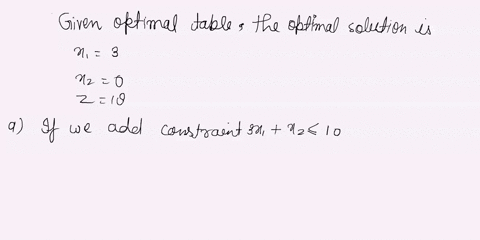 Given optimal table, the optimal solution is
x₁ = 3
x₂ = 0
Z = 18
a) If we add constraint 3x₁ + x₂ ≤ 10